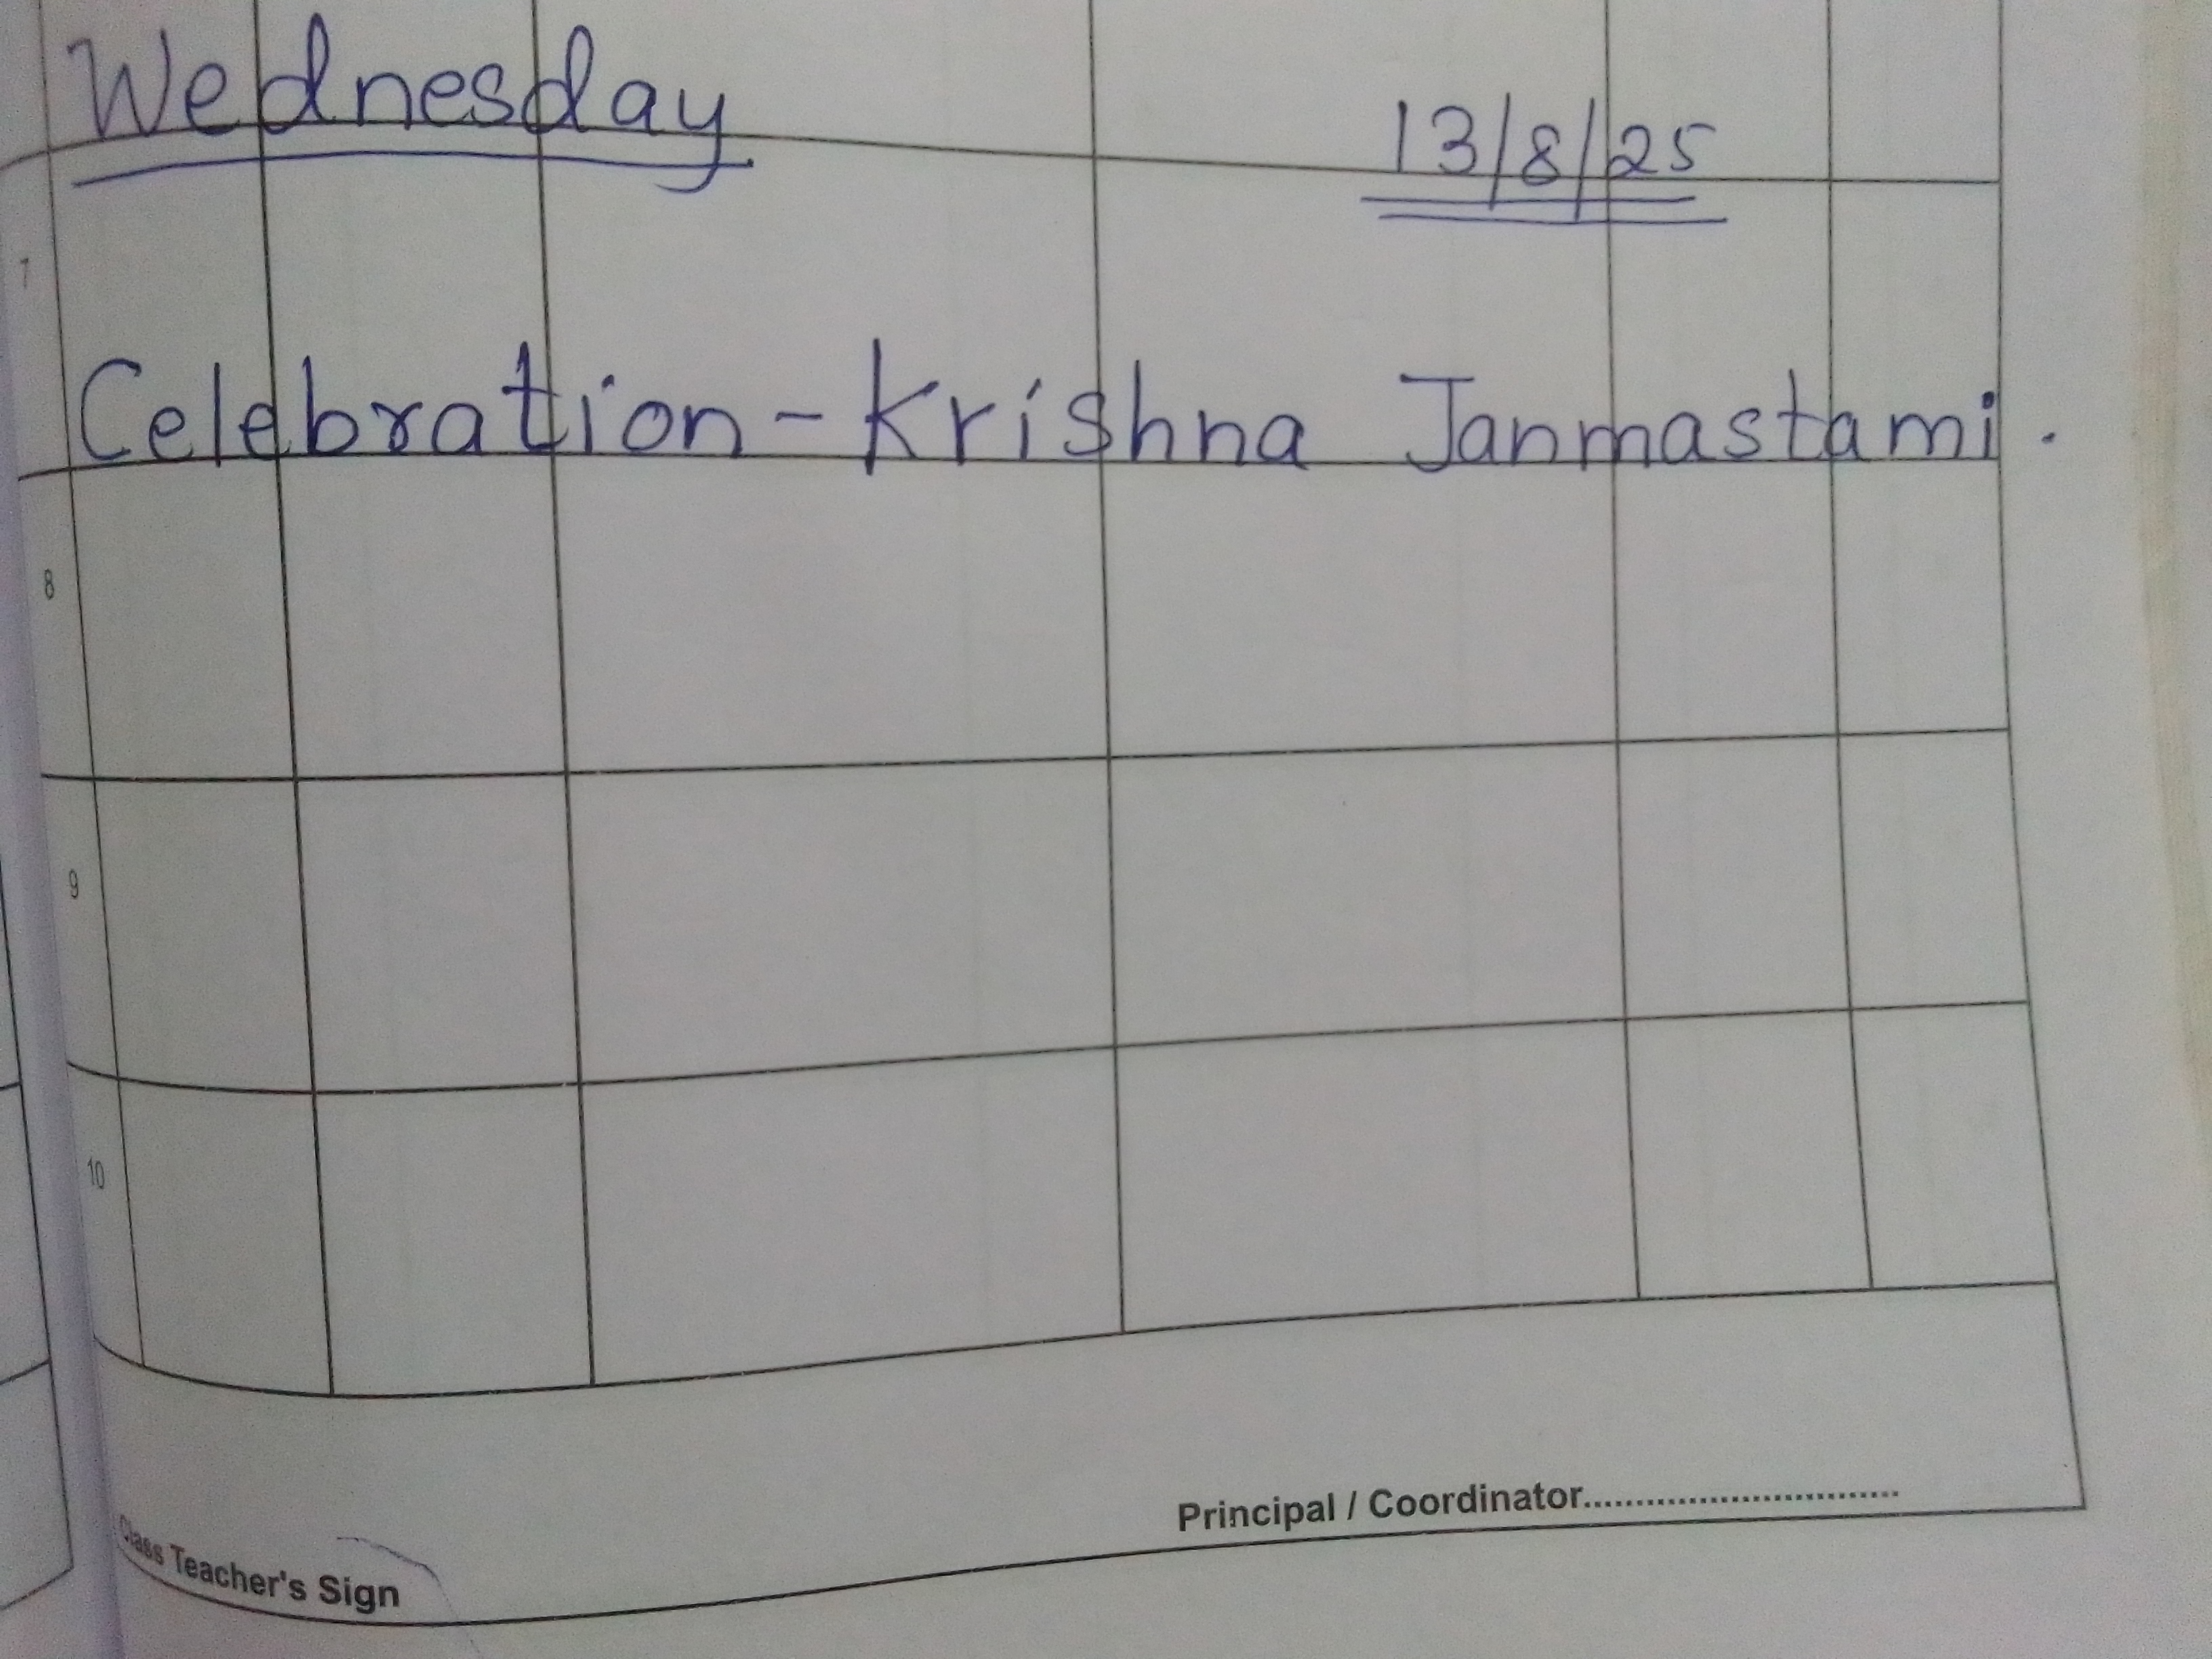 Wednesday
13/8/25
7
Celebration - Krishna Janmastami.
8
9
10
Principal / Coordinator..............................
Class Teacher's Sign